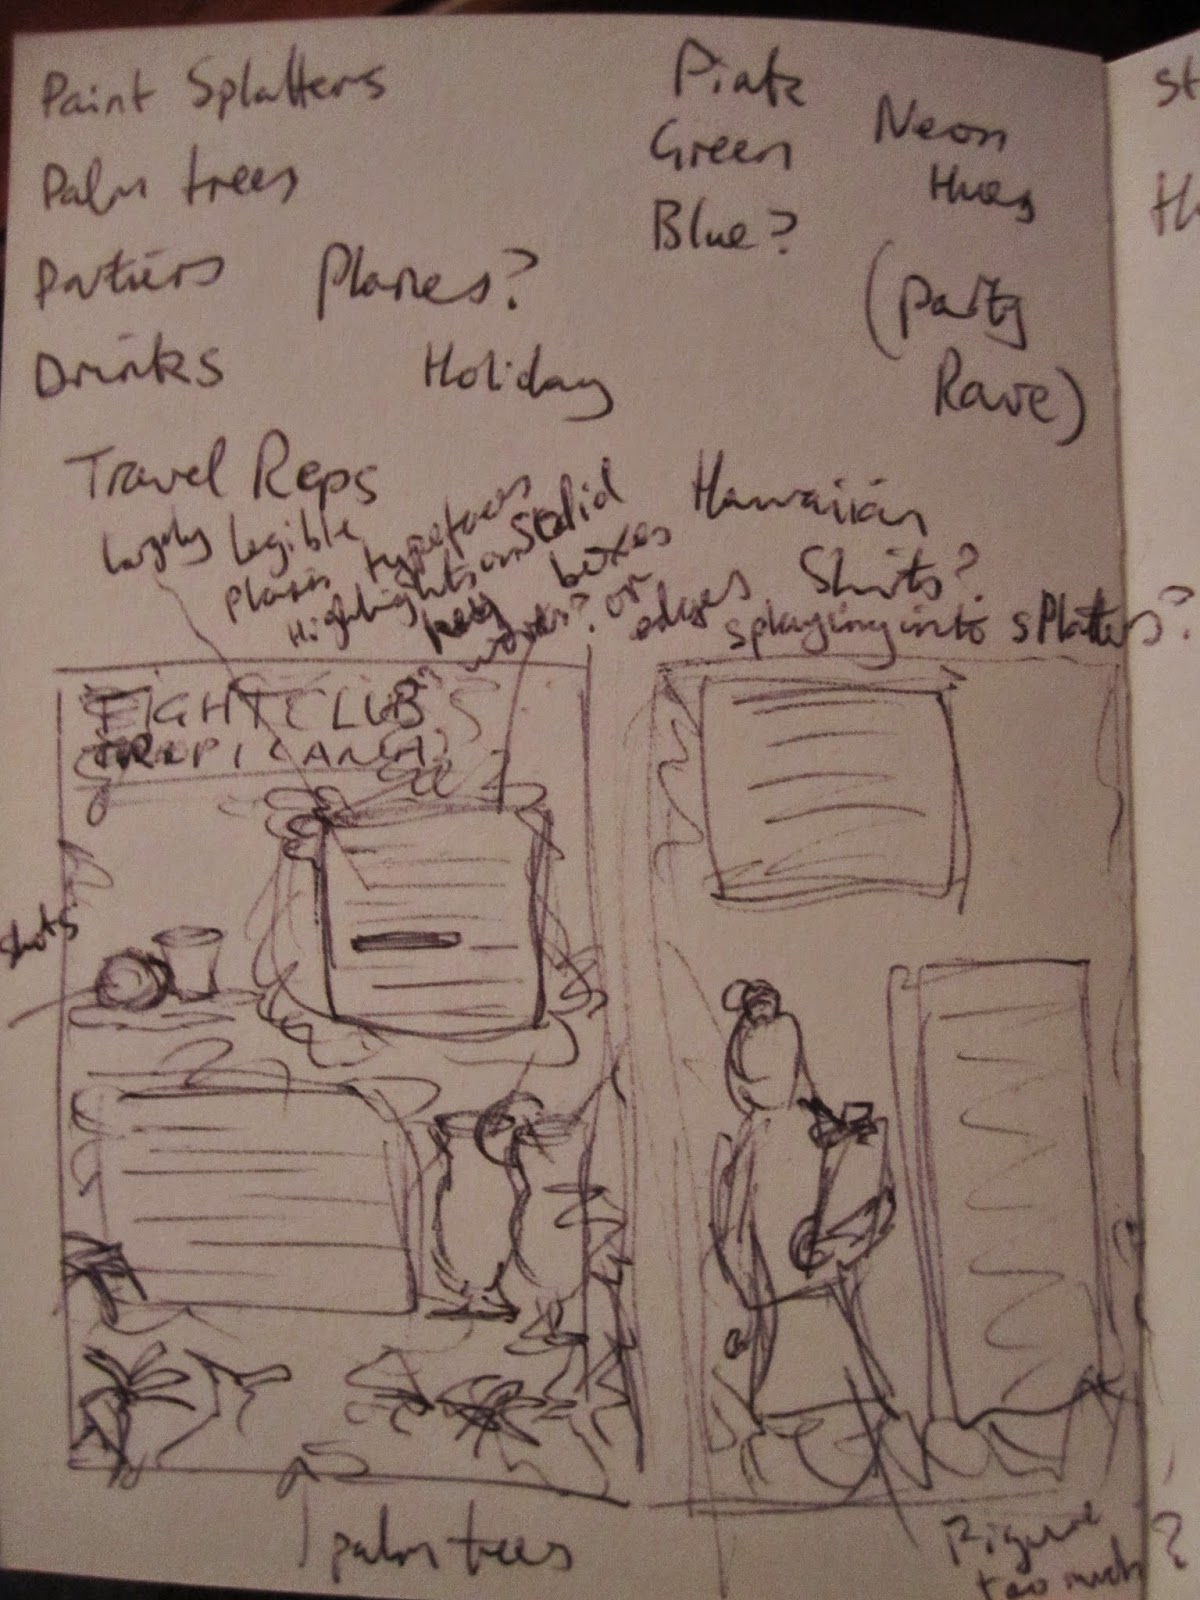 Paint Splatters
Palm trees
Partiers
Planes?
Drinks
Holiday
Pink
Green
Blue?
Neon
Hues
(Party
Rave)
Travel Reps
Hawaiian
Shirts?
largely legible
plain typefaces
Highlights on
key words?
solid
boxes
or
edges
splaying into splatters?
FIGHTCLUB
TROPICANA
shots
palm trees
Figure
too much?
st
th